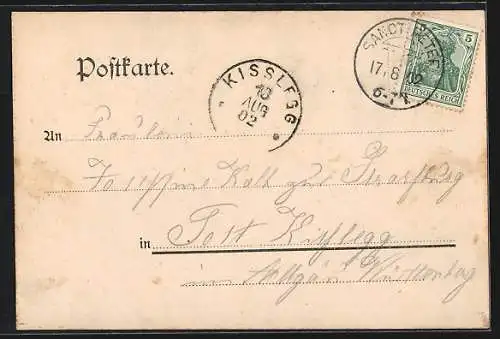 SANCT PETER
17. 8. 02
6-7N
5
DEUTSCHES REICH
Postkarte.
KISSLEGG
18
AUG
02
An Fräulein
Josephine Kalt zur
in Post Kisslegg
im Allgäu Württemberg